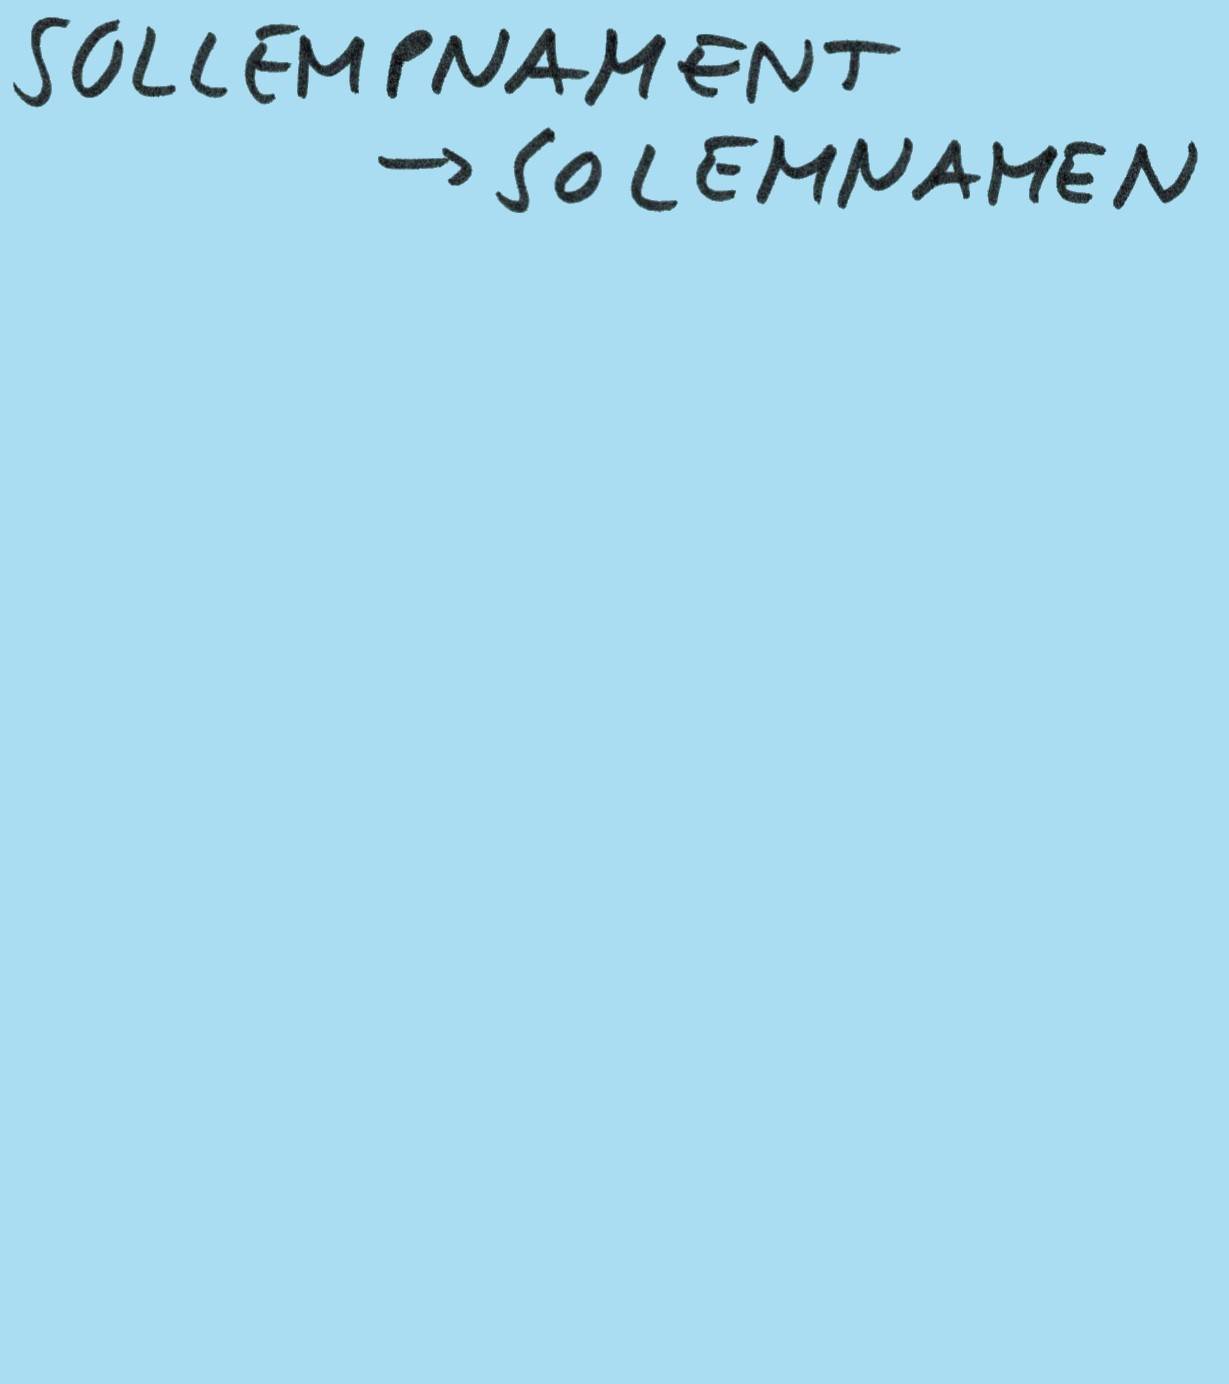 SOLLEMPNAMENT
→ SOLEMNAMEN